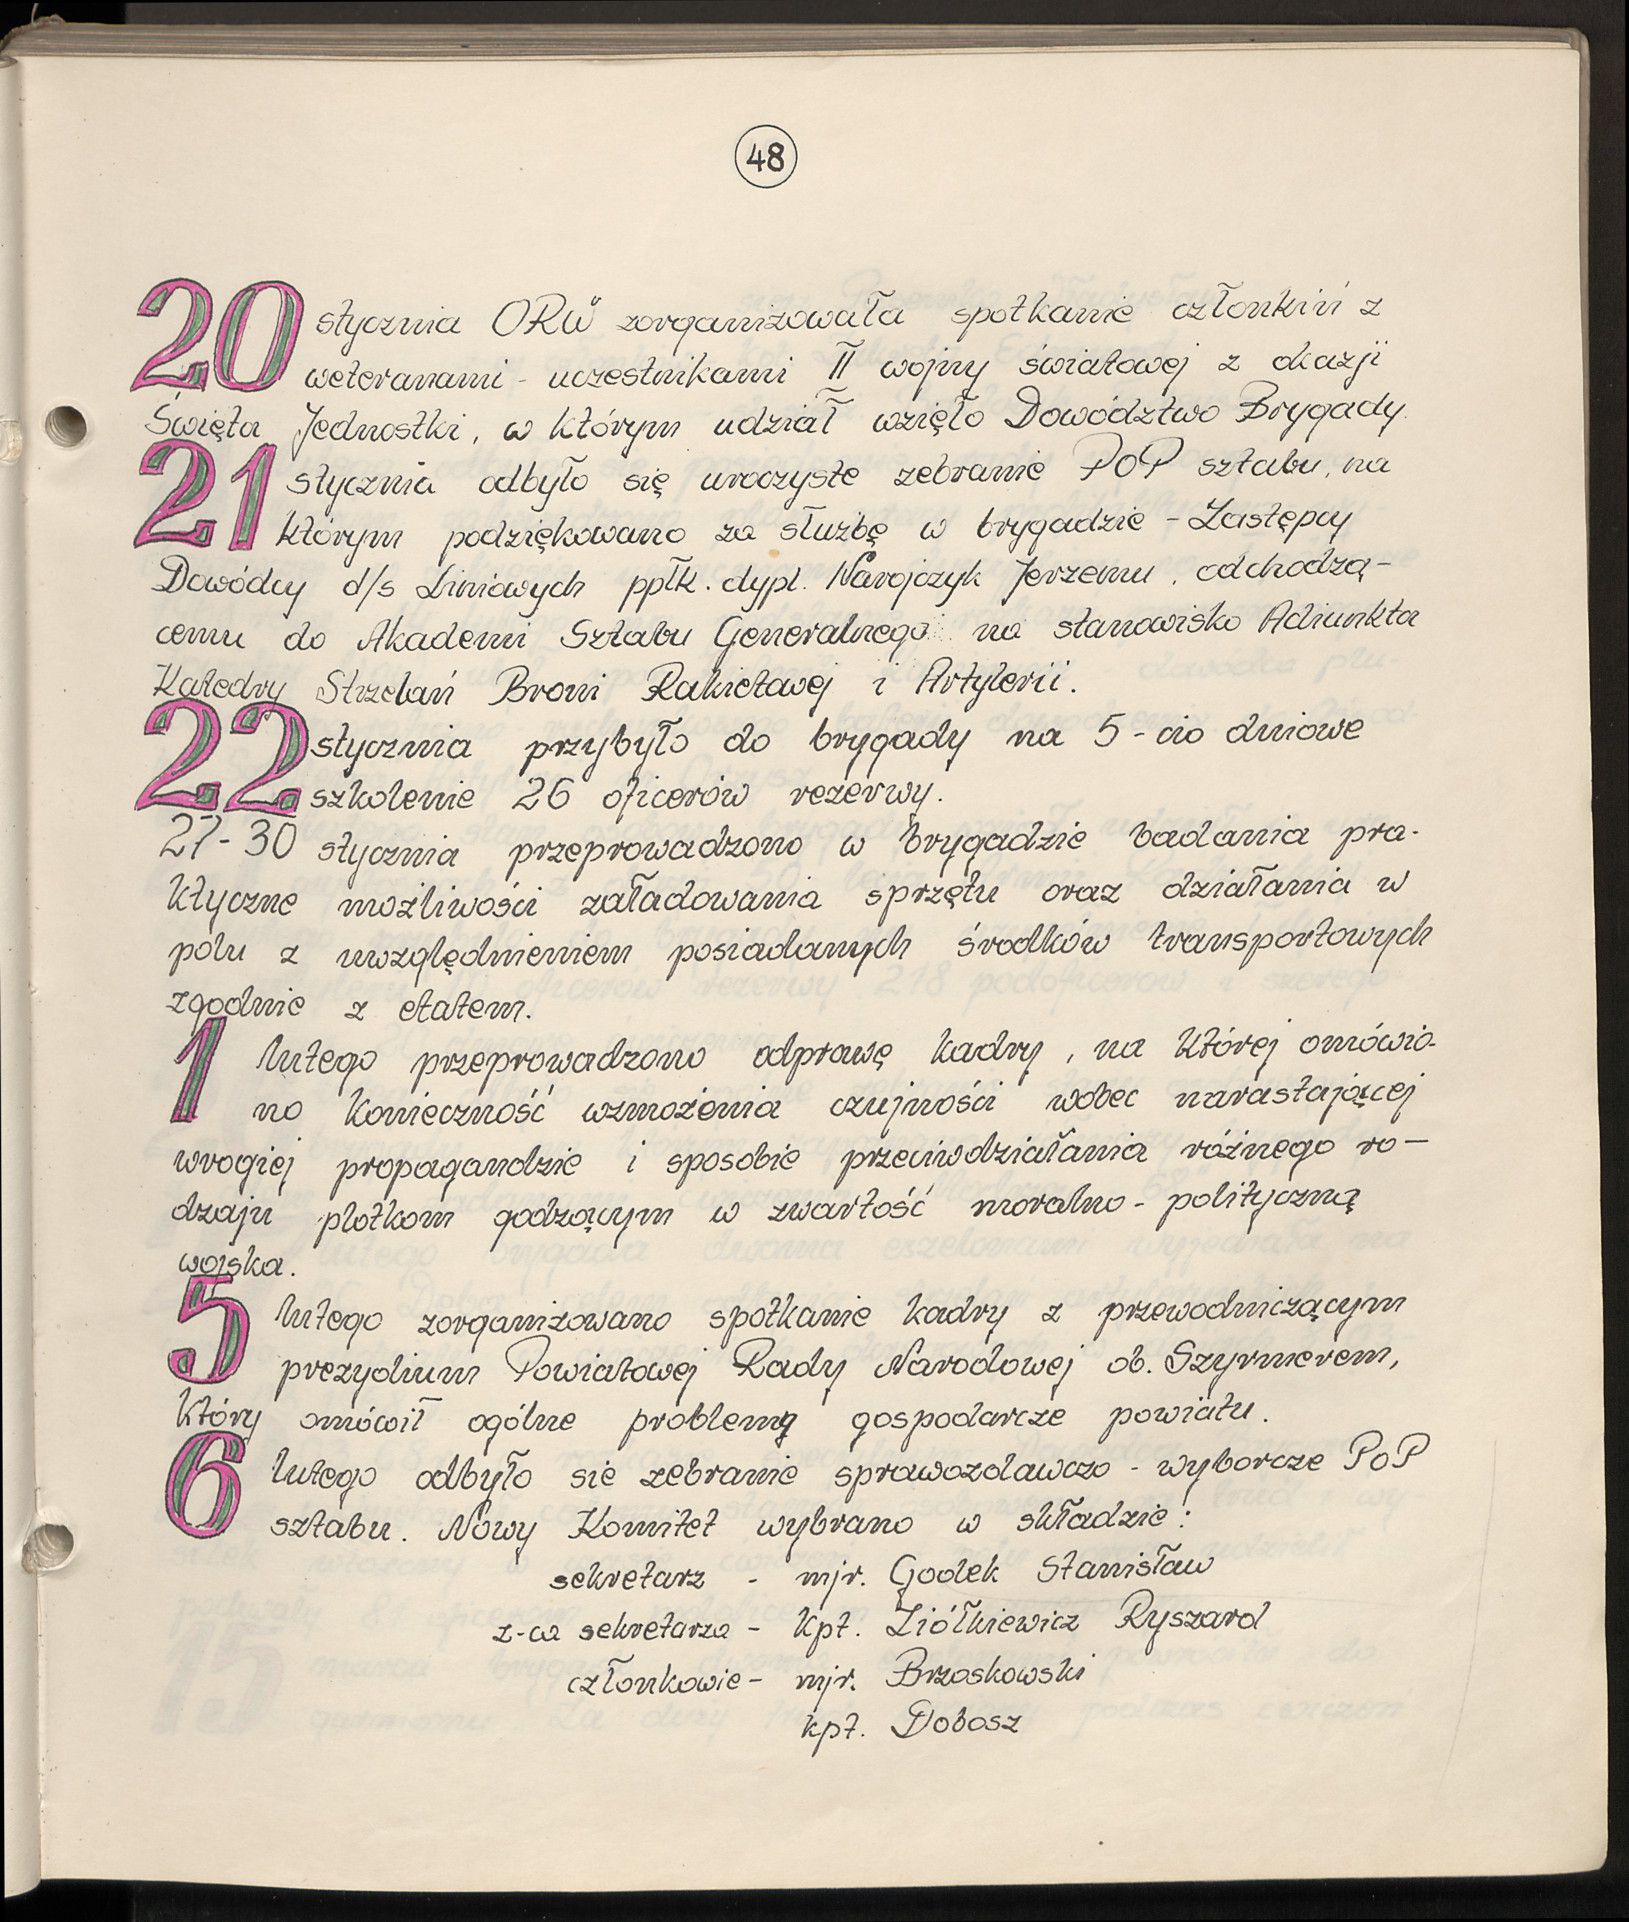 48
20 stycznia ORW zorganizowała spotkanie członkiń z
weteranami - uczestnikami II wojny światowej z okazji
Święta Jednostki, w którym udział wzięło Dowództwo Brygady.
21 stycznia odbyło się uroczyste zebranie POP sztabu, na
którym podziękowano za służbę w brygadzie - Zastępcy
Dowódcy d/s Liniowych ppłk. dypl. Narojczyk Jerzemu, odchodzą-
cemu do Akademi Sztabu Generalnego na stanowisko Adiunkta
Katedry Strzelań Broni Rakietowej i Artylerii.
22 stycznia przybyło do brygady na 5-cio dniowe
szkolenie 26 oficerów rezerwy.
27-30 stycznia przeprowadzono w brygadzie badania pra-
ktyczne możliwości załadowania sprzętu oraz działania w
polu z uwzględnieniem posiadanych środków transportowych
zgodnie z etatem.
1 lutego przeprowadzono odprawę kadry, na której omówio-
no konieczność wzmożenia czujności wobec narastającej
wrogiej propagandzie i sposobie przeciwdziałania różnego ro-
dzaju plotkom godzącym w zwartość moralno - polityczną
wojska.
5 lutego zorganizowano spotkanie kadry z przewodniczącym
prezydium Powiatowej Rady Narodowej ob. Szyrmerem,
który omówił ogólne problemy gospodarcze powiatu.
6 lutego odbyło sie zebranie sprawozdawczo - wyborcze POP
sztabu. Nowy Komitet wybrano w składzie:
sekretarz - mjr. Godek Stanisław
z-ca sekretarza - kpt. Ziółkiewicz Ryszard
członkowie - mjr. Brzoskowski
kpt. Dobosz